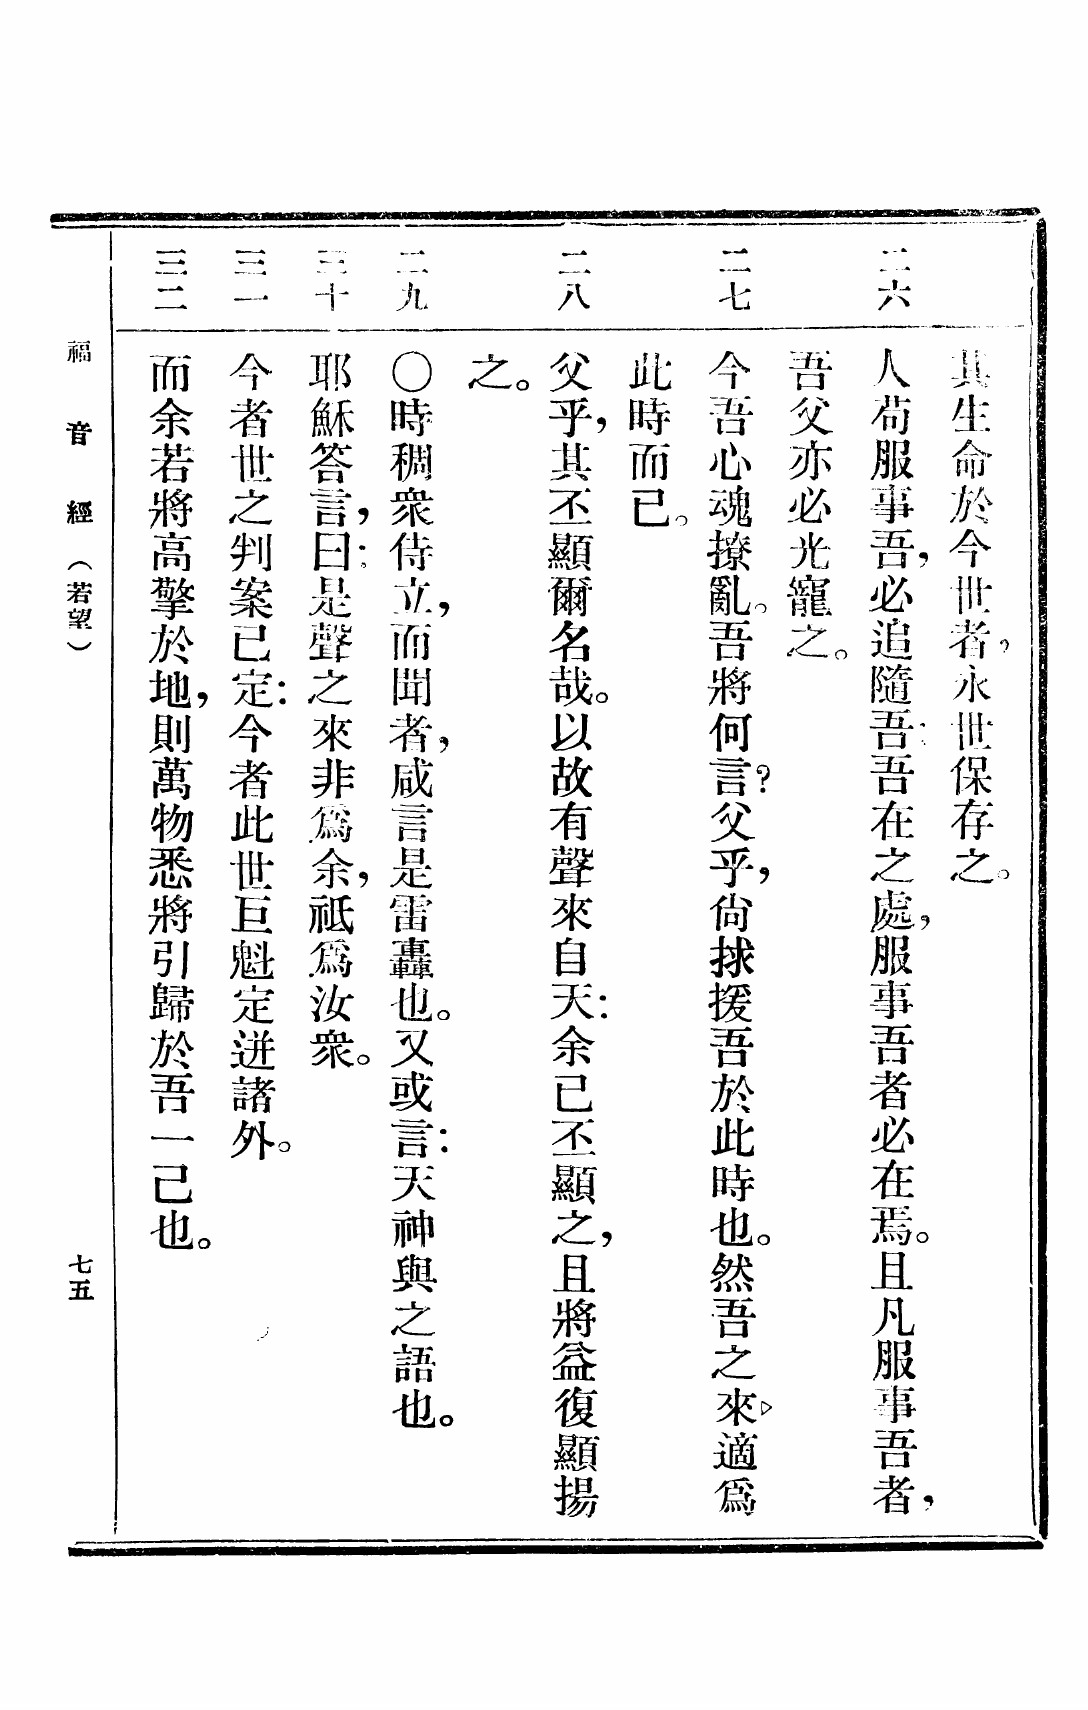 其生命於今世者，永世保存之。
二六
人苟服事吾，必追隨吾：吾在之處，服事吾者必在焉。且凡服事吾者，
吾父亦必光寵之。
二七
今吾心魂撩亂。吾將何言？父乎，尙捄援吾於此時也。然吾之來，適爲
此時而已。
二八
父乎，其丕顯爾名哉。以故有聲來自天：余已丕顯之，且將益復顯揚
之。
二九
〇時稠衆侍立，而聞者，咸言是雷轟也。又或言：天神與之語也。
三十
耶穌答言，曰：是聲之來非爲余，祇爲汝衆。
三一
今者世之判案已定：今者此世巨魁定迸諸外。
三二
而余若將高擎於地，則萬物悉將引歸於吾一己也。
福音經（若望）
七五